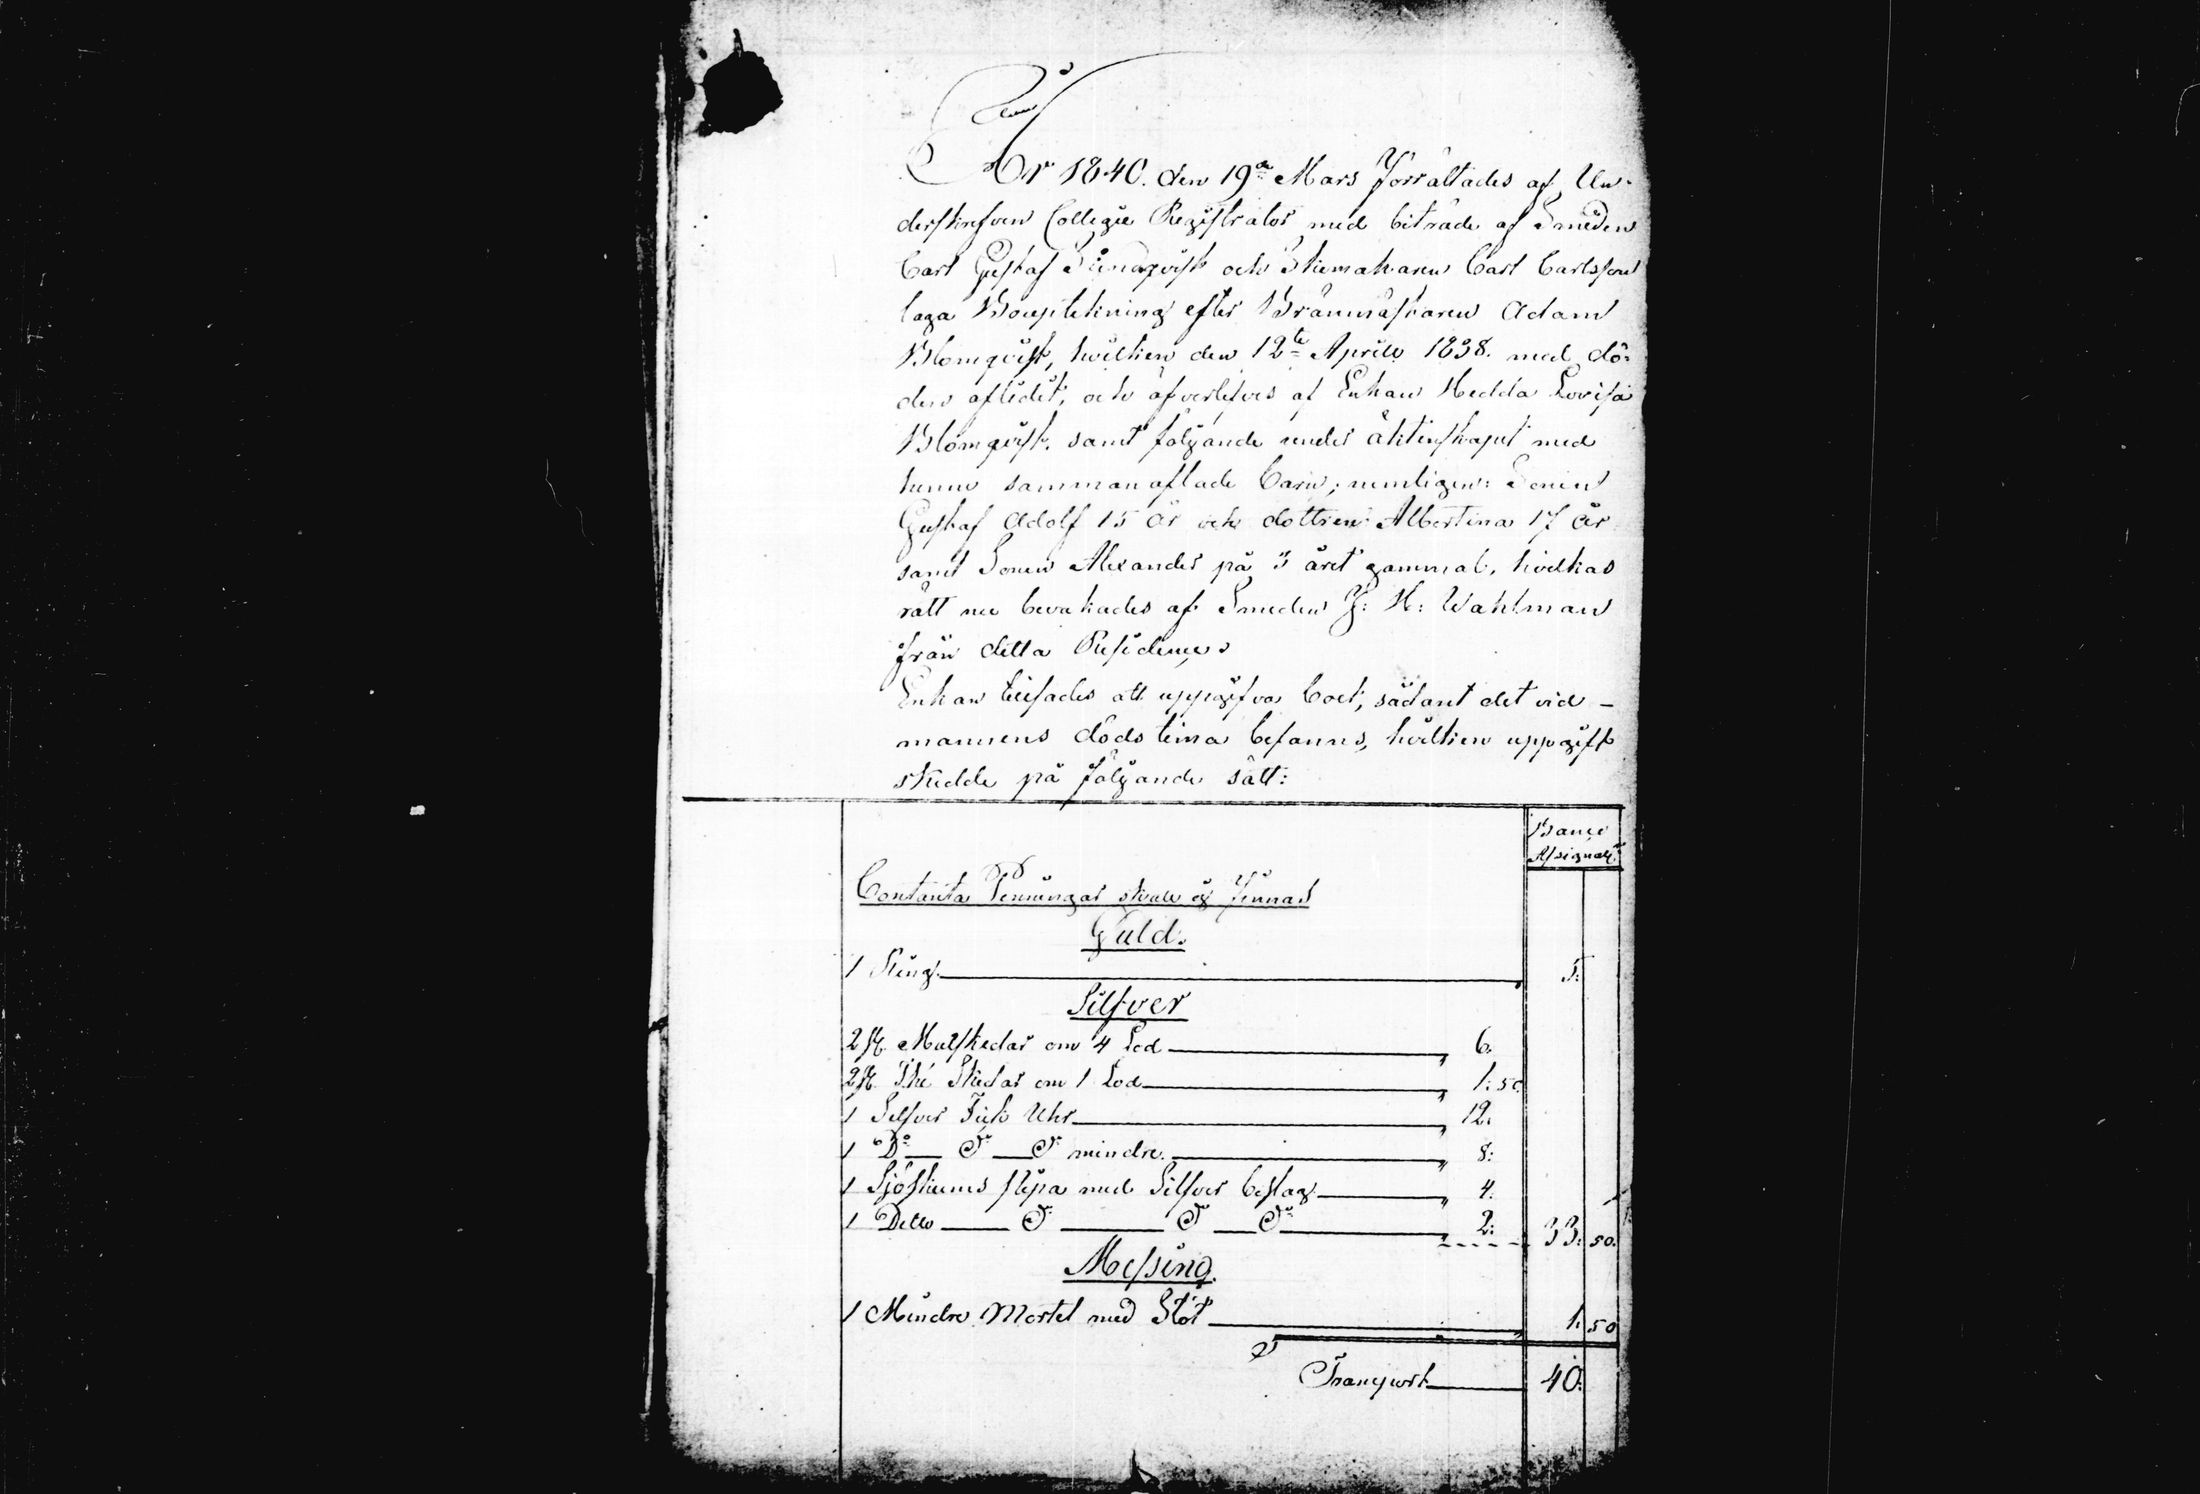 År 1840. den 19de Mars Förrättades af Un-
derskrefven Collegie Registrator med biträde af Smeden
Carl Gustaf Sundqvist och Skomakaren Carl Carlsson
laga Bouptekning efter Bränmästaren Adam
Blomqvist, hvilken den 12te Aprill 1838. med dö-
den aflidit, och öfverlefves af Enkan Hedda Lovisa
Blomqvist. samt följande under äktenskapet med
henne sammanaflade barn; nemligen: Sonen
Gustaf Adolf 15 år och dottren Albertina 17 år
samt Sonen Alexander på 3 året gammal, hvilkas
rätt nu bevakades af Smeden J: H: Wahlman
från detta
Enkan att uppgifva boet, sådant det vid -
mannens dödstima befanns, hvilken uppgift
skedde på följande sätt:
Banco
Assignat.
Contanta Penningar skall ej finnas
Guld.
1 Ring. 5:
Silfver
2 st. Matskedar om 4 Lod 6:
2 st. Thé Skedar om 1 Lod 1: 50
1 Silfver Fick Uhr 12:
1 Do do do mindre. 8:
1 Sjöskums pipa med Silfver beslag 4.
1 Detto do do do 2: 33: 50.
Messing.
1 Mindre Mortel med Stöt 1. 50
Transport 40: